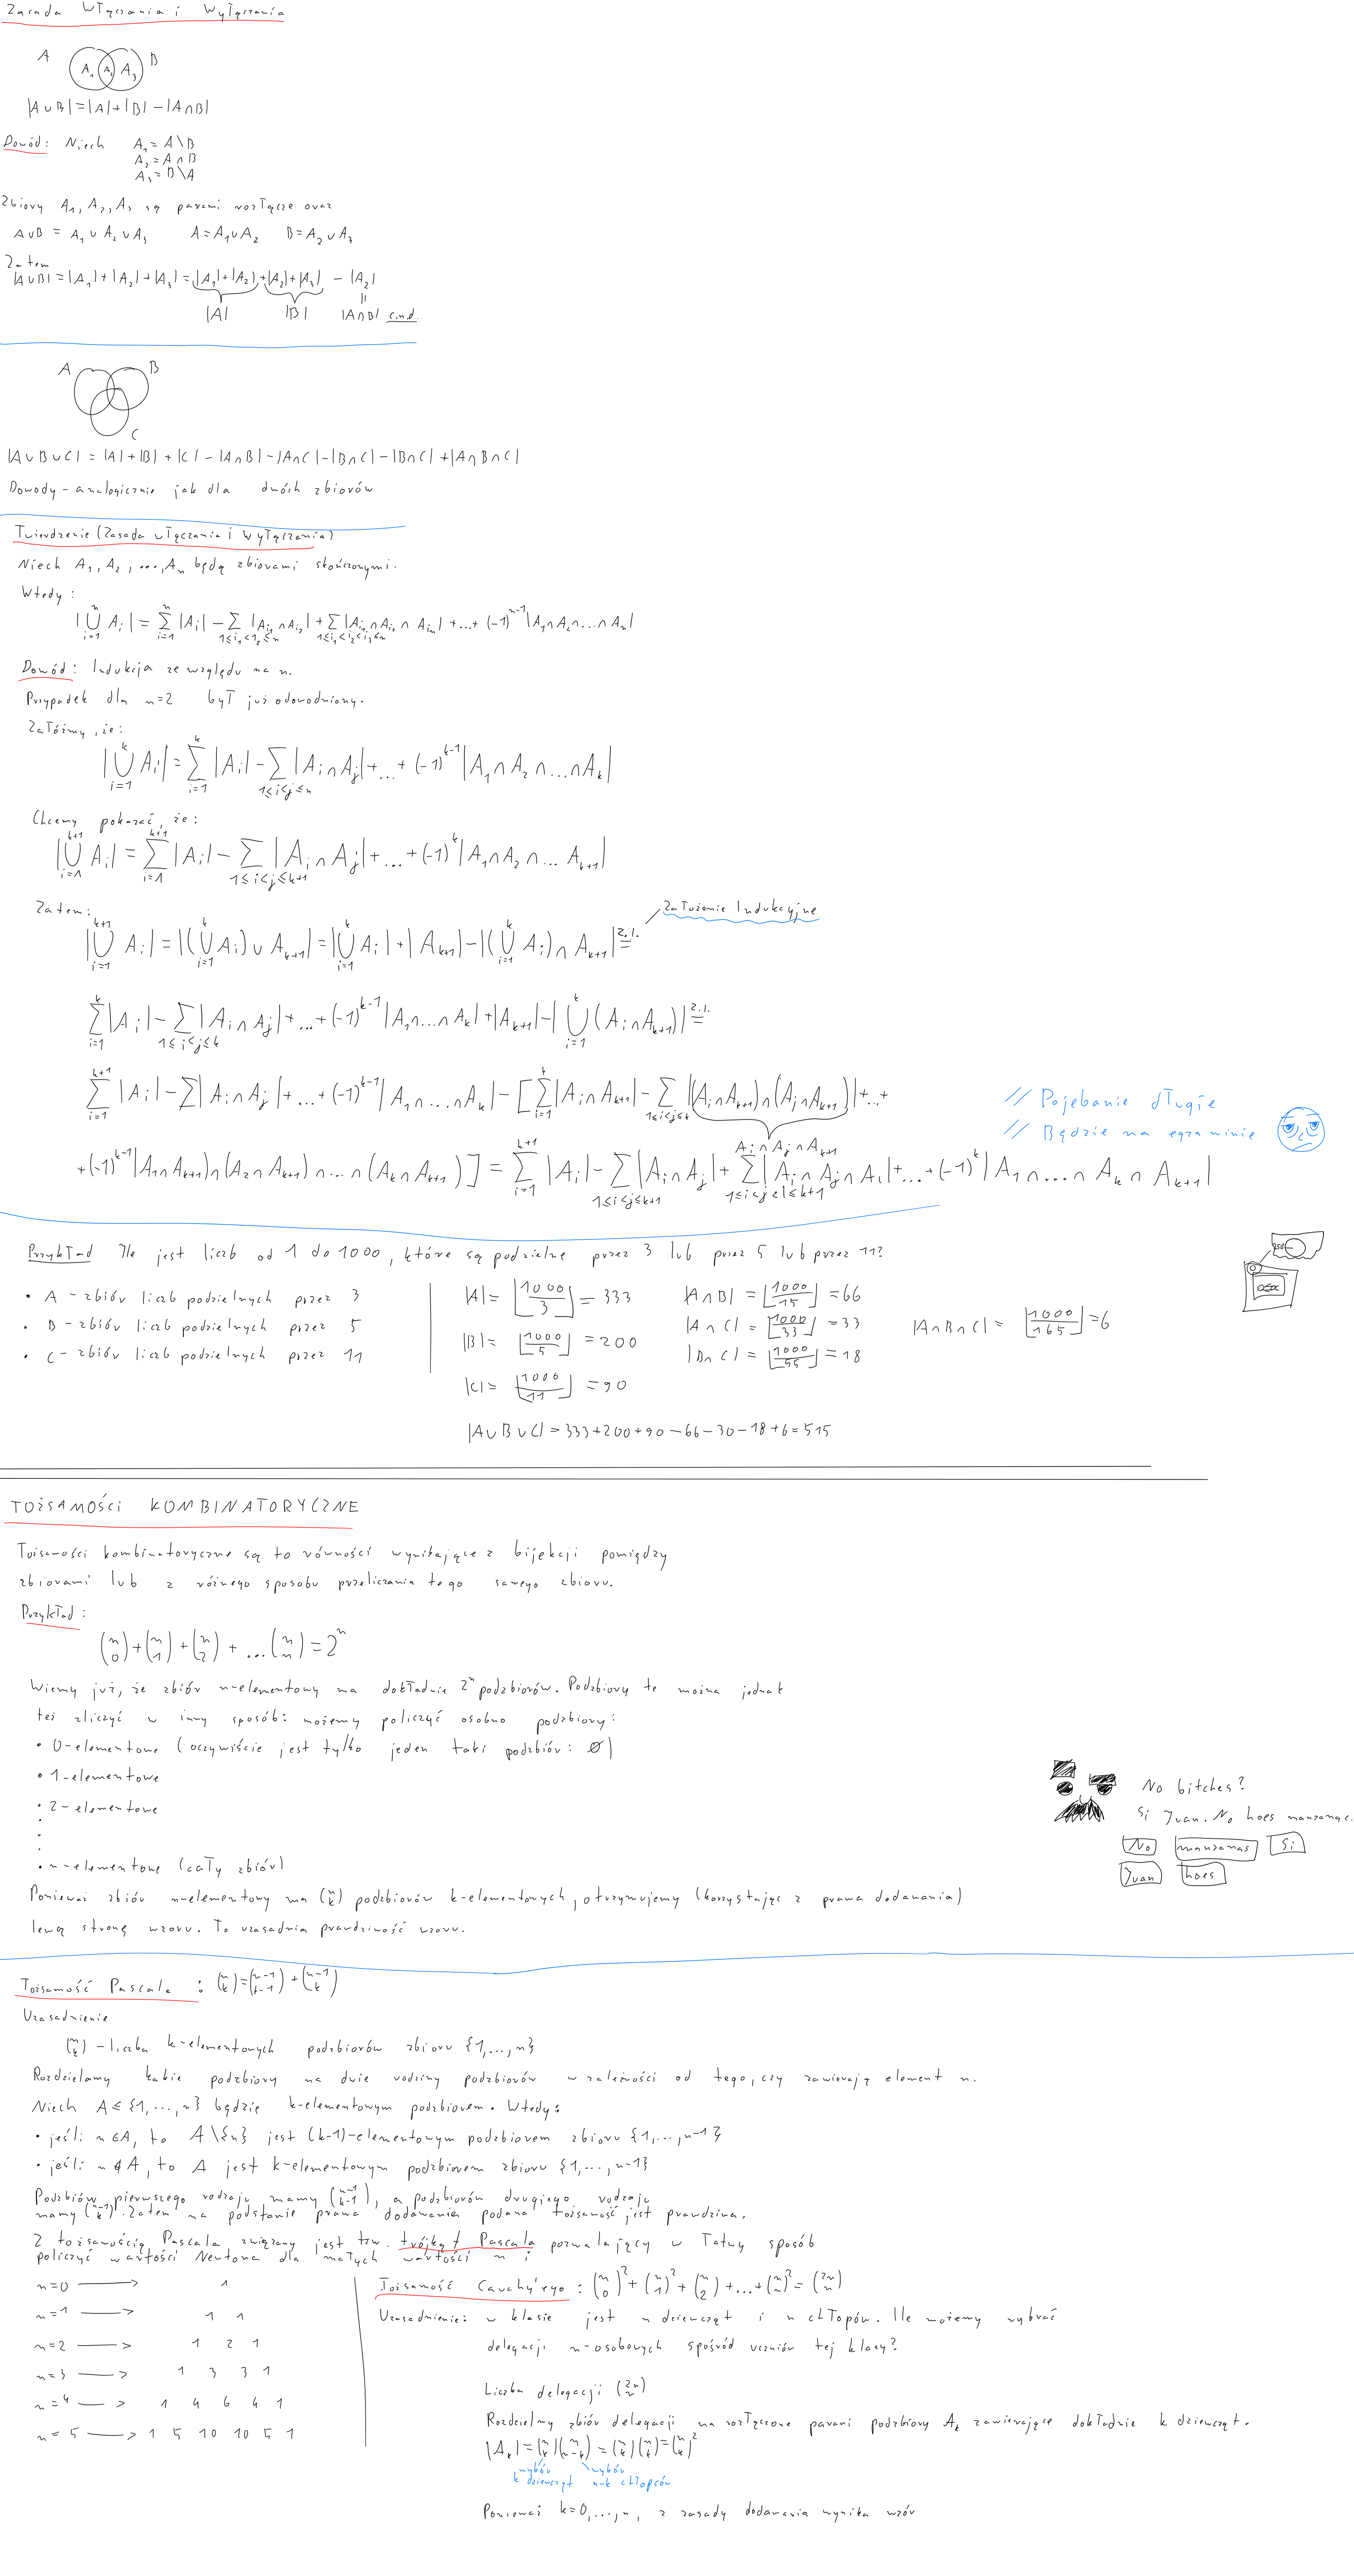 Zasada Włączania i Wyłączania
A B
A₁ A₂ A₃
|A∪B|=|A|+|B|-|A∩B|
Dowód: Niech A₁=A\B
A₂=A∩B
A₃=B\A
Zbiory A₁, A₂, A₃ są parami rozłącze oraz
A∪B = A₁∪A₂∪A₃ A=A₁∪A₂ B=A₂∪A₃
Zatem
|A∪B|=|A₁|+|A₂|+|A₃|=|A₁|+|A₂|+|A₂|+|A₃| - |A₂|
|A| |B| |A∩B| c.n.d.
A B
C
|A∪B∪C| = |A|+|B|+|C|-|A∩B|-|A∩C|-|B∩C|-|B∩C|+|A∩B∩C|
Dowody-analogicznie jak dla dwóch zbiorów
Twierdzenie (Zasada włączania i Wyłączania)
Niech A₁, A₂, ..., Aₙ będą zbiorami skończonymi.
Wtedy:
|⋃ᵢ₌₁ⁿ Aᵢ| = ∑ᵢ₌₁ⁿ |Aᵢ| - ∑_{1≤i₁<i₂≤n} |A_{i₁}∩A_{i₂}| + ∑_{1≤i₁<i₂<i₃≤n} |A_{i₁}∩A_{i₂}∩A_{i₃}| +...+ (-1)ⁿ⁻¹ |A₁∩A₂∩...∩Aₙ|
Dowód: Indukcja ze względu na n.
Przypadek dla n=2 był już odowodniony.
Załóżmy, że:
|⋃ᵢ₌₁ᵏ Aᵢ| = ∑ᵢ₌₁ᵏ |Aᵢ| - ∑_{1≤i<j≤n} |Aᵢ∩Aⱼ| +...+ (-1)ᵏ⁻¹ |A₁∩A₂∩...∩Aₖ|
Chcemy pokazać, że:
|⋃ᵢ₌₁ᵏ⁺¹ Aᵢ| = ∑ᵢ₌₁ᵏ⁺¹ |Aᵢ| - ∑_{1≤i<j≤k+1} |Aᵢ∩Aⱼ| +...+ (-1)ᵏ |A₁∩A₂∩... Aₖ₊₁|
Zatem: Założenie Indukcyjne
|⋃ᵢ₌₁ᵏ⁺¹ Aᵢ| = |(⋃ᵢ₌₁ᵏ Aᵢ)∪Aₖ₊₁| = |⋃ᵢ₌₁ᵏ Aᵢ| + |Aₖ₊₁| - |(⋃ᵢ₌₁ᵏ Aᵢ)∩Aₖ₊₁| =(z.I.)
∑ᵢ₌₁ᵏ |Aᵢ| - ∑_{1≤i<j≤k} |Aᵢ∩Aⱼ| +...+ (-1)ᵏ⁻¹ |A₁∩...∩Aₖ| + |Aₖ₊₁| - |⋃ᵢ₌₁ᵏ (Aᵢ∩Aₖ₊₁)| =(z.I.)
∑ᵢ₌₁ᵏ⁺¹ |Aᵢ| - ∑|Aᵢ∩Aⱼ| +...+ (-1)ᵏ⁻¹ |A₁∩...∩Aₖ| - [∑ᵢ₌₁ᵏ |Aᵢ∩Aₖ₊₁| - ∑_{1≤i<j≤k} |(Aᵢ∩Aₖ₊₁)∩(Aⱼ∩Aₖ₊₁)| +...+
Aᵢ∩Aⱼ∩Aₖ₊₁
// Pojebanie długie
// Będzie na egzaminie
+(-1)ᵏ⁻¹ |A₁∩Aₖ₊₁)∩(A₂∩Aₖ₊₁)∩...∩(Aₖ∩Aₖ₊₁)] = ∑ᵢ₌₁ᵏ⁺¹ |Aᵢ| - ∑_{1≤i<j≤k+1} |Aᵢ∩Aⱼ| + ∑_{1≤i<j<l≤k+1} |Aᵢ∩Aⱼ∩Aₗ| +...+ (-1)ᵏ |A₁∩...∩Aₖ∩Aₖ₊₁|
Przykład Ile jest liczb od 1 do 1000, które są podzielne przez 3 lub przez 5 lub przez 11?
• A - zbiór liczb podzielnych przez 3
• B - zbiór liczb podzielnych przez 5
• C - zbiór liczb podzielnych przez 11
|A| = ⌊1000/3⌋ = 333 |A∩B| = ⌊1000/15⌋ = 66
|B| = ⌊1000/5⌋ = 200 |A∩C| = ⌊1000/33⌋ = 33 |A∩B∩C| = ⌊1000/165⌋ = 6
|C| = ⌊1000/11⌋ = 90 |B∩C| = ⌊1000/55⌋ = 18
|A∪B∪C| = 333+200+90-66-30-18+6=515
TOŻSAMOŚCI KOMBINATORYCZNE
Tożsamości kombinatoryczne są to równości wynikające z bijekcji pomiędzy
zbiorami lub z różnego sposobu przeliczania tego samego zbioru.
Przykład:
(n 0)+(n 1)+(n 2) + ...(n n) = 2ⁿ
Wiemy już, że zbiór n-elementowy ma dokładnie 2ⁿ podzbiorów. Podzbiory te można jednak
też zliczyć w inny sposób: możemy policzyć osobno podzbiory:
• 0-elementowe (oczywiście jest tylko jeden taki podzbiór: ∅)
• 1-elementowe
• 2-elementowe
• n-elementowe (cały zbiór)
No bitches?
Si Juan. No hoes manzanas.
No manzanas Si
Juan hoes
Ponieważ zbiór n-elementowy ma (n k) podzbiorów k-elementowych, otrzymujemy (korzystając z prawa dodawania)
lewą stronę wzoru. To uzasadnia prawdziwość wzoru.
Tożsamość Pascala : (n k)=(n-1 k-1)+(n-1 k)
Uzasadnienie
(n k) - liczba k-elementowych podzbiorów zbioru {1,...,n}
Rozdzielamy takie podzbiory na dwie rodziny podzbiorów w zależności od tego, czy zawierają element n.
Niech A⊆{1,...,n} będzie k-elementowym podzbiorem. Wtedy:
• jeśli n∈A, to A\{n} jest (k-1)-elementowym podzbiorem zbioru {1,...,n-1}
• jeśli n∉A, to A jest k-elementowym podzbiorem zbioru {1,...,n-1}
Podzbiów pierwszego rodzaju mamy (n-1 k-1), a podzbiorów drugiego rodzaju
mamy (n-1 k). Zatem na podstawie prawa dodawania podana tożsamość jest prawdziwa.
Z tożsamością Pascala związany jest tzw. trójkąt Pascala pozwalający w łatwy sposób
policzyć wartości Newtona dla małych wartości n i
n=0 → 1
n=1 → 1 1
n=2 → 1 2 1
n=3 → 1 3 3 1
n=4 → 1 4 6 4 1
n=5 → 1 5 10 10 5 1
Tożsamość Cauchy'ego : (n 0)²+(n 1)²+(n 2)²+...+(n n)²=(2n n)
Uzasadnienie: w klasie jest n dziewcząt i n chłopów. Ile możemy wybrać
delegacji n-osobowych spośród uczniów tej klasy?
Liczba delegacji (2n n)
Rozdzielmy zbiór delegacji na rozłączone parami podzbiory Aₖ zawierające dokładnie k dziewcząt.
|Aₖ|=(n k)(n n-k)=(n k)(n k)=(n k)²
wybór k dziewcząt wybór n-k chłopców
Ponieważ k=0,...,n, z zasady dodawania wynika wzór